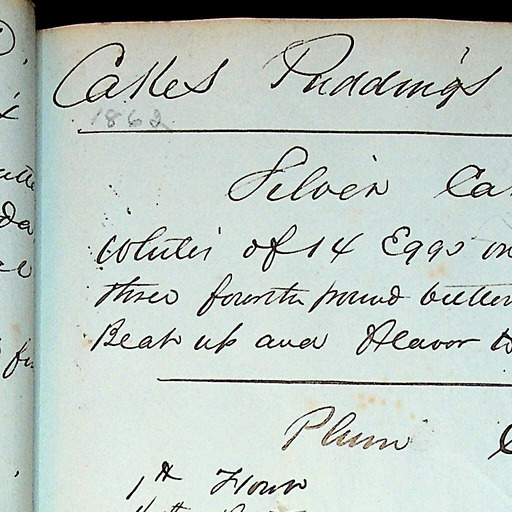 Cakes Puddings
1862
Silver Ca
Whites of 14 Eggs on
three fourth pound butter
Beat up and flavor t
Plum C
1 lb Flour